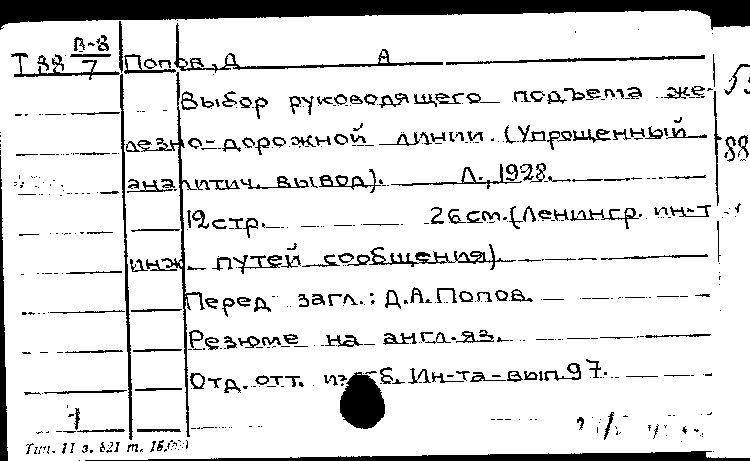 Т 88 В-8/7 Попов, Д А
Выбор руководящего подъема же-
лезно-дорожной линии. (Упрощенный
аналитич. вывод). Л., 1928.
12 стр. 26 см. (Ленингр. ин-т
инж. путей сообщения).
Перед загл.: Д.А. Попов.
Резюме на англ. яз.
Отд. отт. из сб. Ин-та - вып. 97.
Тип. 11 з. 821 т.
88